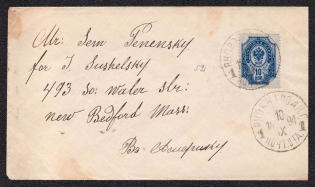 Mr: Sem Penensky
for I Sushelsky
493 So: water str:
new Bedford Mass:
Въ Америку
10
1
1
10
X